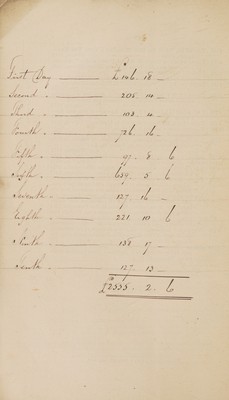 First Day — £146 18 —
Second — 205 . 14 —
Third — 103 . 4 —
Fourth — 726 . 16 —
Fifth — 97 . 8 6
Sixth — 639 . 5 6
Seventh — 127 . 16 —
Eighth — 221 . 10 6
Ninth — 138 . 17 —
Tenth — 127 . 13 —
£2535 . 2 . 6